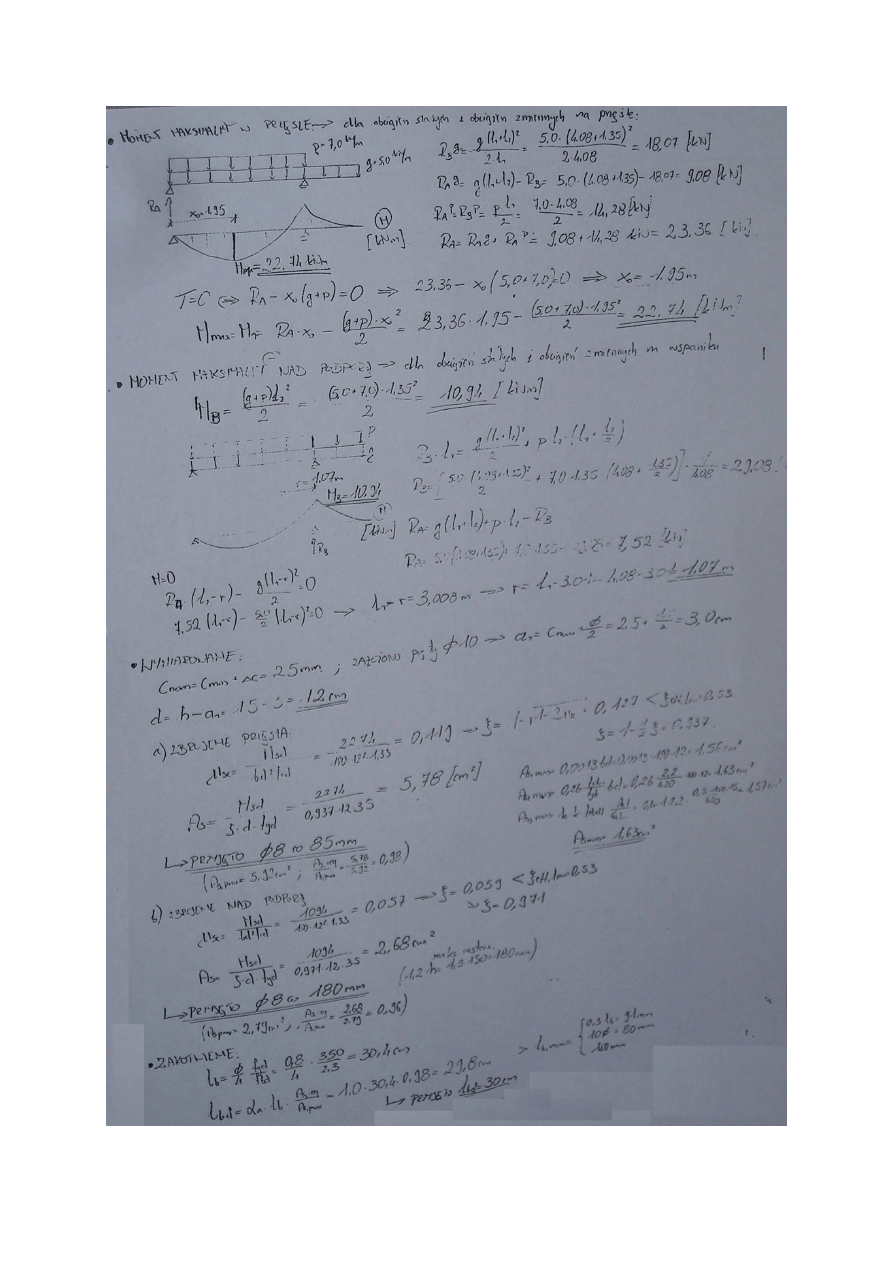 • MOMENT MAKSYMALNY W PRZĘŚLE → dla obciążeń stałych i obciążeń zmiennych na przęśle:
p=7,0 kN/m
g=5,0 kN/m
R_A
x₀=1,95
M
[kNm]
=22,74 kNm
R_B g = g(l₁+l₂)²/2·l₁ = 5,0·(4,08+1,35)²/2·4,08 = 18,07 [kN]
R_A g = g(l₁+l₂)-R_B = 5,0·(4,08+1,35)-18,07 = 9,08 [kN]
R_A P = R_B P = p l₁/2 = 7,0·4,08/2 = 14,28 [kN]
R_A = R_A g + R_A P = 9,08+14,28 kN = 23,36 [kN].
T=0 ⇔ R_A - x₀(g+p)=0 ⇒ 23,36 - x₀(5,0+7,0)=0 ⇒ x₀=1,95m
M max = R_A·x₀ - (g+p)·x₀²/2 = 23,36·1,95 - (5,0+7,0)·1,95²/2 = 22,74 [kNm]
• MOMENT MAKSYMALNY NAD PODPORĄ → dla obciążeń stałych i obciążeń zmiennych na wsporniku
M_B = (g+p)l₂²/2 = (5,0+7,0)·1,35²/2 = 10,94 [kNm]
P
r=1,07m
M_B=10,94
M
[kNm]
R_B
R_B·l₁ = g(l₁+l₂)²/2 + p l₂·(l₁+l₂/2)
R_B = [5,0·(4,08+1,35)²/2 + 7,0·1,35·(4,08+1,35/2)]·1/4,08 = 29,08
R_A = g(l₁+l₂)+p·l₂-R_B
= 7,52 [kN]
M=0
R_A·(l₁-r) - g(l₁-r)²/2 = 0
7,52(l₁-r) - 5,0/2 (l₁-r)²=0 → l₁-r=3,008m → r= 1,07m
• WYMIAROWANIE:
Cnom=Cmin+ΔC=25mm ; φ10 → a₁=Cnom+φ/2=2,5+1,0/2=3,0cm
d=h-a₁=15-3=12cm
a) ZBROJENIE PRZĘSŁA:
μsc= Msd/bd²fcd = 2274/100·12²·1,33 = 0,119 → ξ=1-√1-2μ = 0,127 < ξeff,lim=0,53
ζ=1-½ξ=0,937
As= Msd/ζ·d·fyd = 2274/0,937·12·35 = 5,78 [cm²]
As min= 0,0013bd=0,0013·100·12=1,56cm²
As min= 0,26 bd=0,26 2,2/420 =1,63cm²
=1,57cm²
As min=1,63cm²
↳ PRZYJĘTO φ8 co 85mm
(As prov= 5,92cm² ; = 5,78/5,92=0,98)
b) ZBROJENIE NAD PODPORĄ
μsc= Msd/bd²fcd = 1094/100·12²·1,33 = 0,057 → ξ=0,059 < ξeff,lim=0,53
→ ζ=0,971
As= Msd/ζ·d·fyd = 1094/0,971·12·35 = 2,68cm²
(1,2·h=1,2·150=180mm)
↳ PRZYJĘTO φ8 co 180mm
(As prov= 2,79cm² ; = 2,68/2,79=0,96)
• ZAKOTWIENIE:
lb= φ/4 fyd/fbd = 0,8/4 · 350/2,3 = 30,4cm
lbd= αa·lb· = 1,0·30,4·0,98=29,8cm > lb,min= 0,3lb=91mm
10φ=80mm
100mm
↳ PRZYJĘTO lbd=30cm